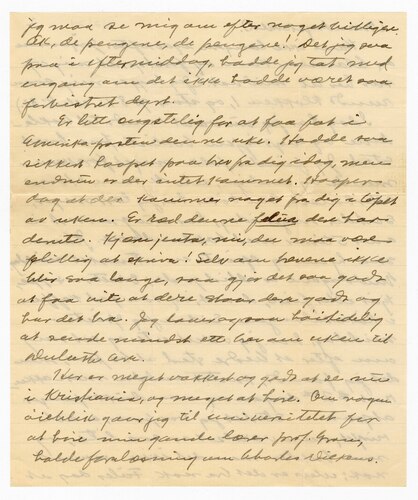 jeg maa se mig om efter noget billigere.
Ak, de pengene, de pengene! Det jeg saa
paa i eftermiddag, hadde jeg tat med
engang om det ikke hadde været saa
forbistret dyrt.
Er litt ængstelig for at faa fat i
Amerika posten denne uke. Hadde saa
sikkert haapet paa brev fra dig idag, men
endnu er der intet kommet. Haaper
dog at der kommer noget fra dig i løpet
av uken. Er ræd denne der har
derute. Kjære jenta, mi, du maa være
flittig at skrive! Selv om brevene ikke
blir saa lange, saa gjør det saa godt
at faa vite at dere staar dere godt og
har det bra. Jeg lover ogsaa høitidelig
at sende mindst ett brev om uken til
Duluth
Her er meget vakkert og godt at se nu
i Kristiania, og meget at høre. Om nogen
øieblik gaar jeg til universitetet for
at høre min gamle lærer prof. Gran,
holde forelæsning om Charles Dickens.